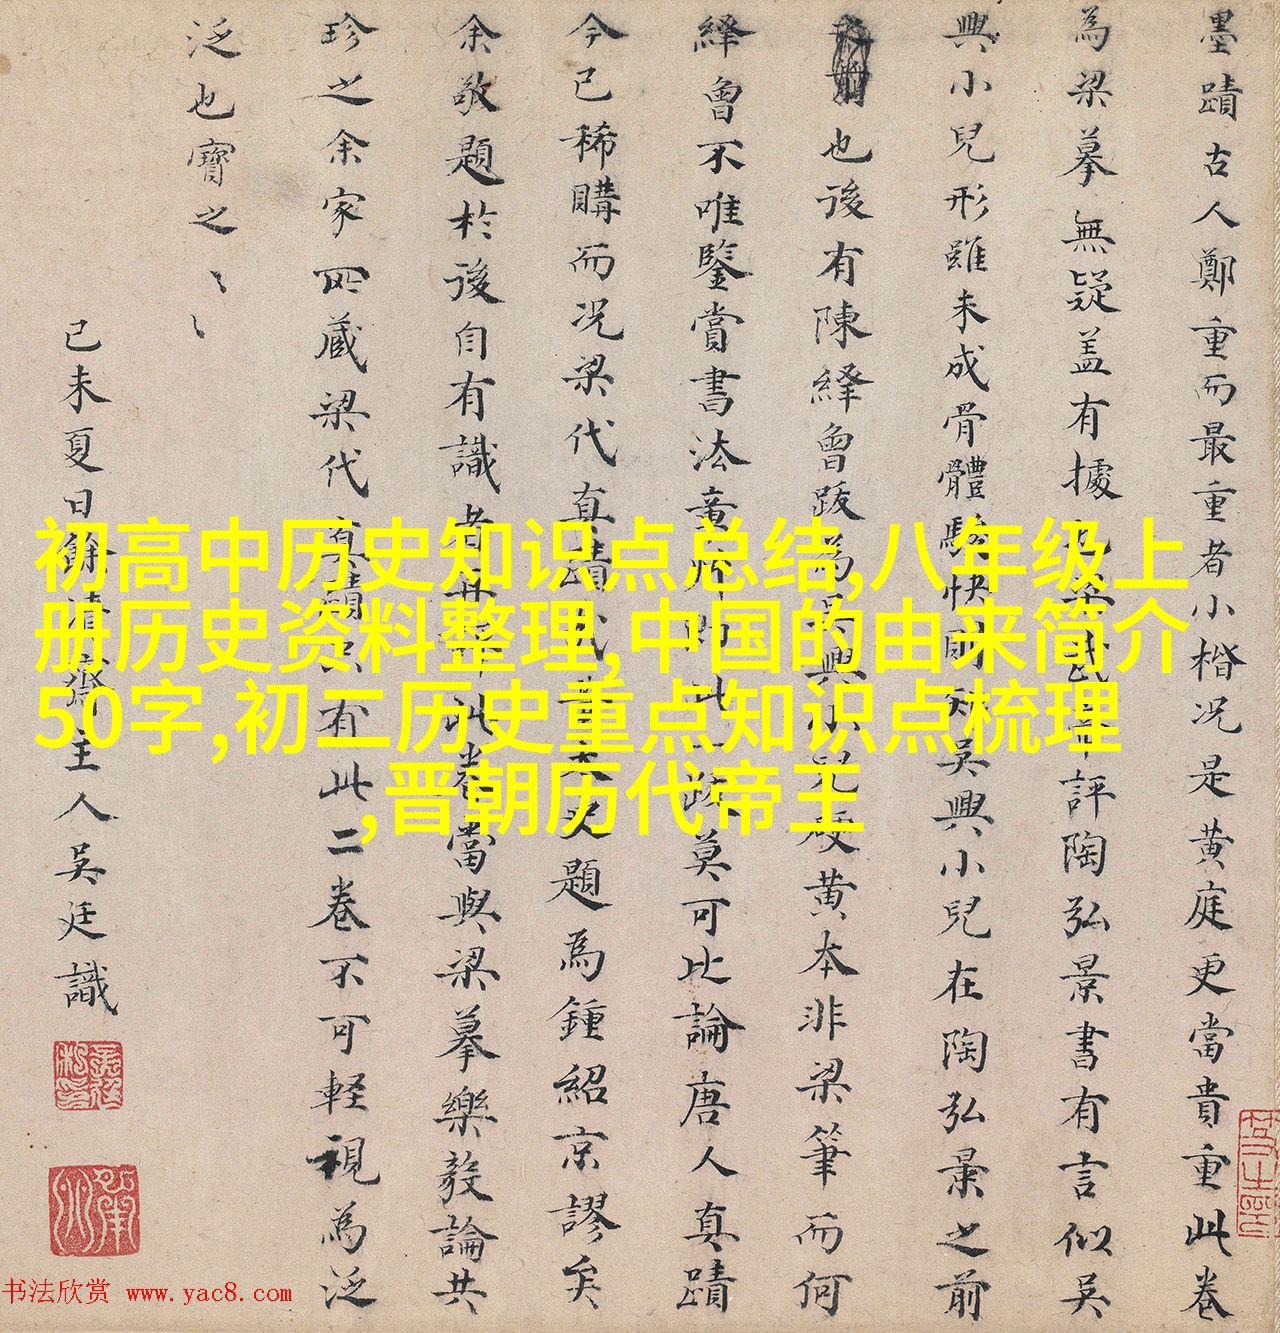 墨蹟古人鄭重而最重者小楷况是黄庭更當貴重此卷
為梁摹無疑盖有據
評陶弘景書有言似吴
興小兒形雖未成骨體駿快
吴興小兒在陶弘景之前
也後有陳繹曾跋為吴興小兒硬黄本非梁筆而何
繹曾不唯鑒賞書法
此一跋莫可比論唐人真蹟
今已稀購而况梁代真蹟
題為鍾紹京謬矣
余敬題於後自有識者
此卷當與梁摹樂毅論共
珍之余家所藏梁代真蹟只有此二卷不可輕視為泛
泛也寶之
己未夏日餘清齋主人吴廷識
初高中历史知识点总结,八年级上
册历史资料整理,中国的由来简介
50字,初二历史重点知识点梳理
,晋朝历代帝王
书法欣赏 www.yac8.com